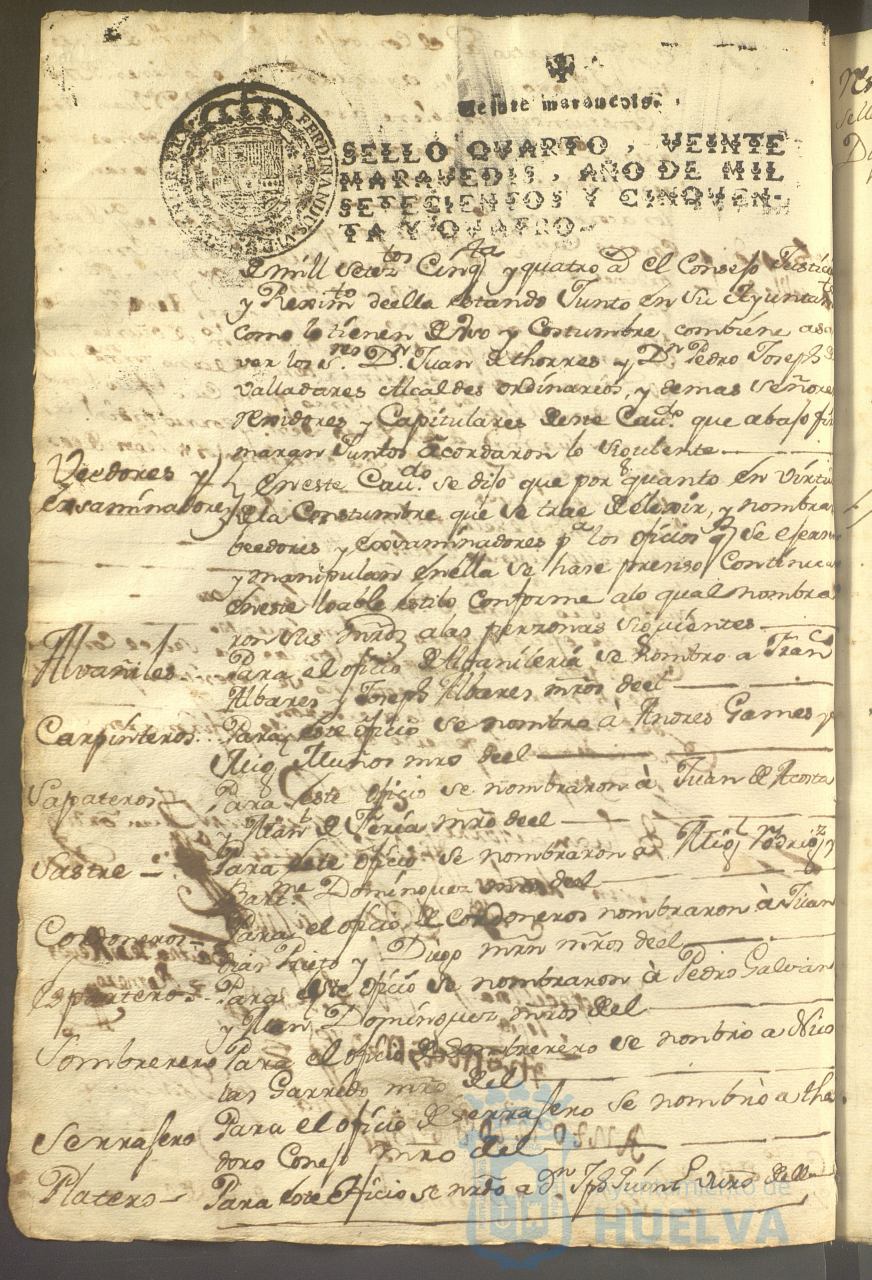 Veinte maravedis.
SELLO QVARTO, VEINTE
MARAVEDIS, AÑO DE MIL
SETECIENTOS Y CINQVEN-
TA Y QVATRO
FERDINANDUS VI
de mill setez.tos Cinq.ta y quatro a.s el Consejo Justicia
y Rexim.to deella estando Junto en su Ayuntam.to
como lo tienen de Uso y Costumbre, combiene a sa
ver los S.res D.n Juan de thorres y D.n Pedro Joseph de
Valladares Alcaldes ordinarios, y demas Señores
rexidores y Capitulares deste Cav.do que abajo fir
maran Juntos acordaron lo siguiente
Veedores y
Exsaminadores
En este Cav.do se dijo que por quanto en virtud
de la Constumbre que se trae de elexir, y nombrar
beedores y exsaminadores p.a los oficios q.e se ejersen
y manipulan en ella se hase presiso Continuar
en este loable estilo, conforme a lo qual nombra
ron sus mrds a las perzonas siguientes
Alvañiles
Para el oficio de Albañileria se nombro a Fran.co
Albares y Joseph Albares mros deel
Carpinteros
Para este oficio se nombro à Andres Games y
Mig.l Muños mro deel
Sapateros
Para este oficio se nombraron à Juan de Acosta
y Man.l de Feria mro deel
Sastre
Para este oficio se nombraron a Mig.l Rodrig.z y
Bar.me Dominguez mros deel
Cordoneros
Para el oficio de cordoneros nombraron à Juan
dias Prieto y Diego mrn mros deel
Espartero
Para este oficio se nombraron à Pedro Galvan
y Juan Dominguez mros del
Sombrerero
Para el oficio de Sombrerero se nombrò a Nico
las Garrido mro del
Serrajero
Para el oficio de serrajero se nombrò a theo
doro Conejo mro del
Platero
Para este Oficio se nrdo a D.n Jph
Ayuntamiento de
HUELVA